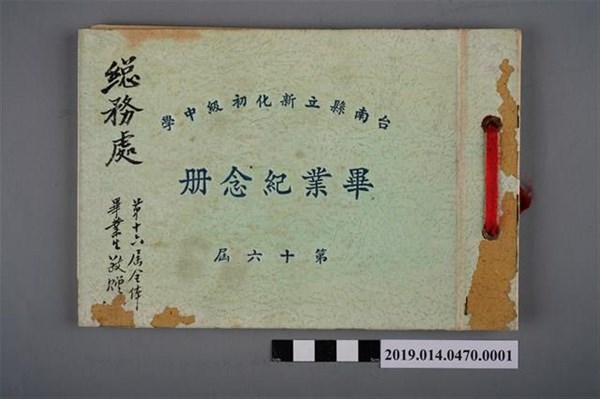 台南縣立新化初級中學
畢業紀念册
第十六屆
總務處
第十六屆全体
畢業生敬贈
2019.014.0470.0001